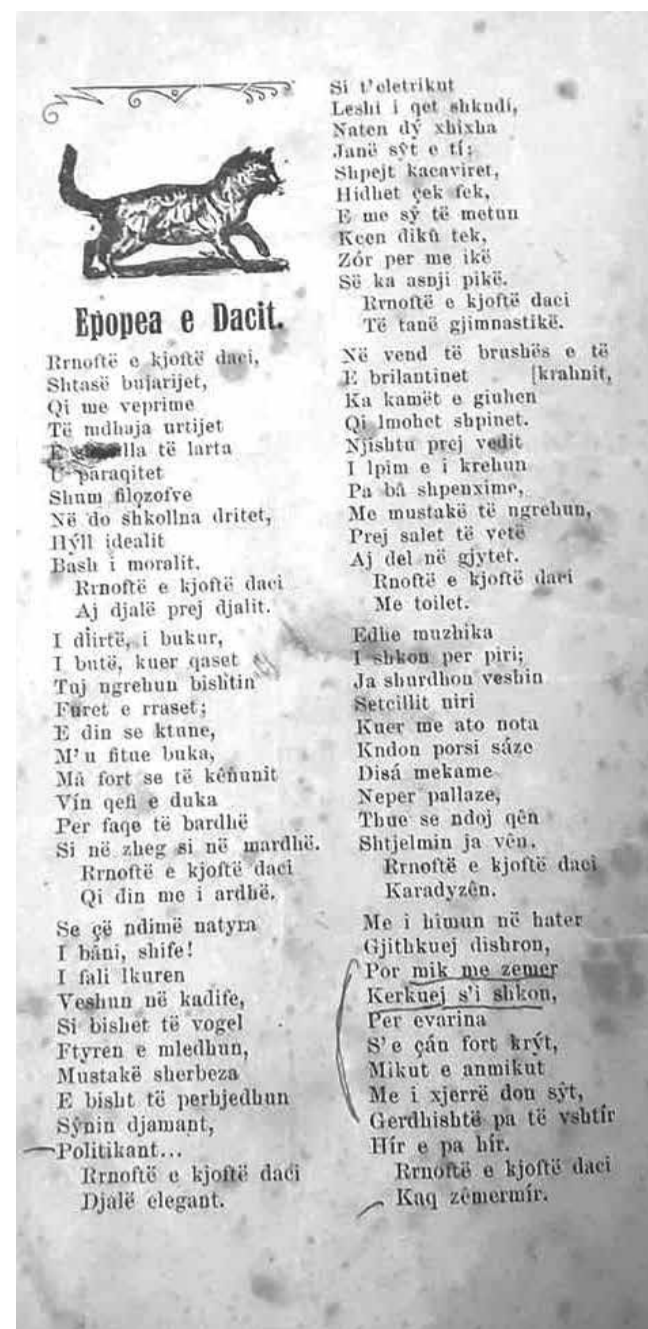 Epopea e Dacit.
Rrnoftë e kjoftë daci,
Shtasë bujarijet,
Qi me veprime
Të mdhaja urtijet
të larta
U paraqitet
Shum filozofve
Në do shkollna dritet,
Hýll idealit
Bash i moralit.
Rrnoftë e kjoftë daci
Aj djalë prej djalit.
I dlirtë, i bukur,
I butë, kuer qaset
Tuj ngrehun bishtin
Furet e rraset;
E din se ktune,
M'u fitue buka,
Mâ fort se të kênunit
Vín qefi e duka
Per faqe të bardhë
Si në zheg si në mardhë.
Rrnoftë e kjoftë daci
Qi din me i ardhë.
Se çë ndimë natyra
I bâni, shife!
I fali lkuren
Veshun në kadife,
Si bishet të vogel
Ftyren e mledhun,
Mustakë sherbeza
E bisht të perbjedhun
Sŷnin djamant,
Politikant...
Rrnoftë e kjoftë daci
Djalë elegant.
Si t'eletrikut
Leshi i qet shkndí,
Naten dý xhixha
Janë sŷt e tí;
Shpejt kacaviret,
Hidhet çek fek,
E me sŷ të metun
Kcen dikû tek,
Zór per me ikë
Së ka asnji pikë.
Rrnoftë e kjoftë daci
Të tanë gjimnastikë.
Në vend të brushës e të
E brilantinet [krahnit,
Ka kamët e giuhen
Qi lmohet shpinet.
Njishtu prej vedit
I lpim e i krehun
Pa bâ shpenxime,
Me mustakë të ngrehun,
Prej salet të vetë
Aj del në gjytet.
Rnoftë e kjoftë daci
Me toilet.
Edhe muzhika
I shkon per piri;
Ja shurdhon veshin
Setcillit niri
Kuer me ato nota
Kndon porsi sáze
Disá mekame
Neper pallaze,
Thue se ndoj qên
Shtjelmin ja vên.
Rrnoftë e kjoftë daci
Karadyzên.
Me i himun në hater
Gjithkuej dishron,
Por mik me zemer
Kerkuej s'i shkon,
Per evarina
S'e çán fort krýt,
Mikut e anmikut
Me i xjerrë don sŷt,
Gerdhishtë pa të vshtír
Hír e pa hír.
Rrnoftë e kjoftë daci
Kaq zêmermír.